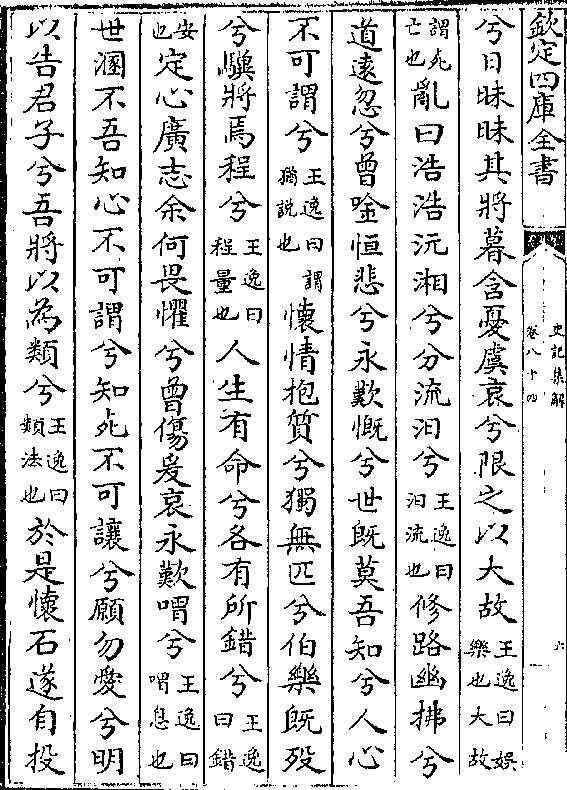 欽定四庫全書
史記集解
卷八十四
六
兮日昧昧其將暮含憂虞哀兮限之以大故王逸曰娛樂也大故
謂死亡也亂曰浩浩沅湘兮分流汨兮王逸曰汨流也修路幽拂兮
道遠忽兮曾唫恒悲兮永歎慨兮世既莫吾知兮人心
不可謂兮王逸曰謂猶說也懷情抱質兮獨無匹兮伯樂既歿
兮驥將焉程兮王逸曰程量也人生有命兮各有所錯兮王逸曰錯
安也定心廣志余何畏懼兮曾傷爰哀永歎喟兮王逸曰喟息也
世溷不吾知心不可謂兮知死不可讓兮願勿愛兮明
以告君子兮吾將以為類兮王逸曰類法也於是懷石遂自投